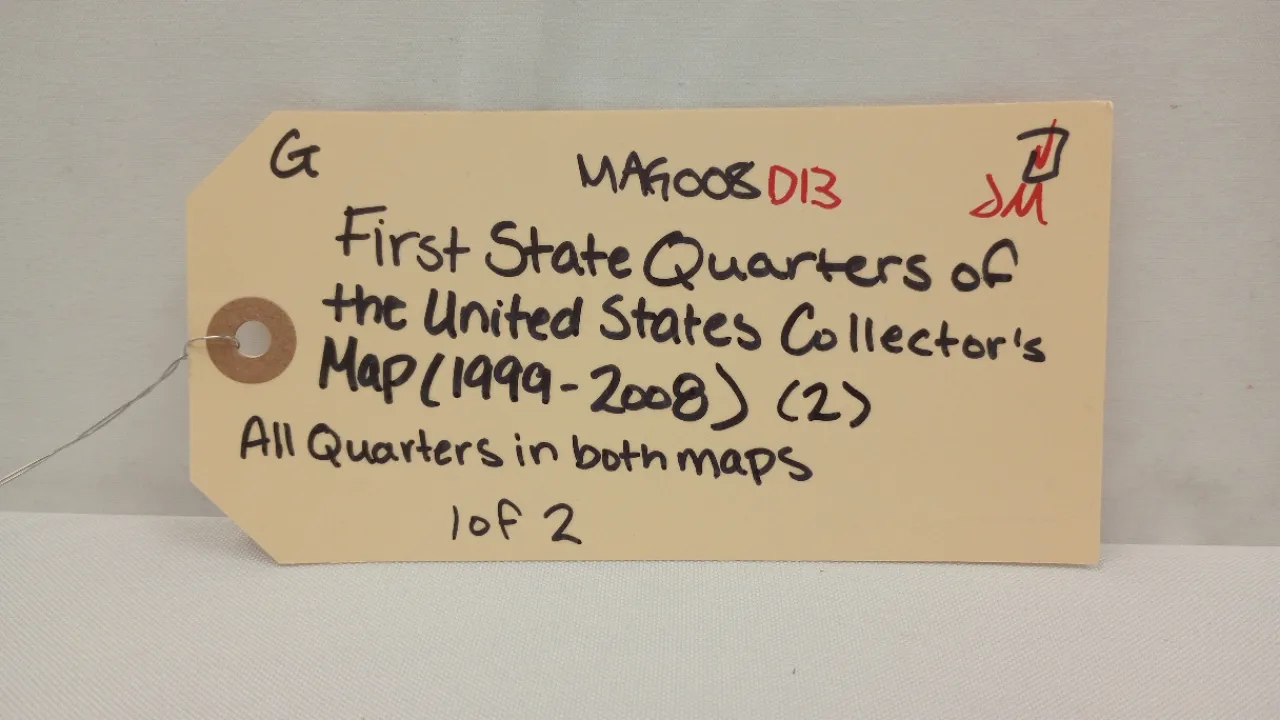 G
MAG008 D13
JM
First State Quarters of
the United States Collector's
Map (1999-2008) (2)
All Quarters in both maps
1 of 2